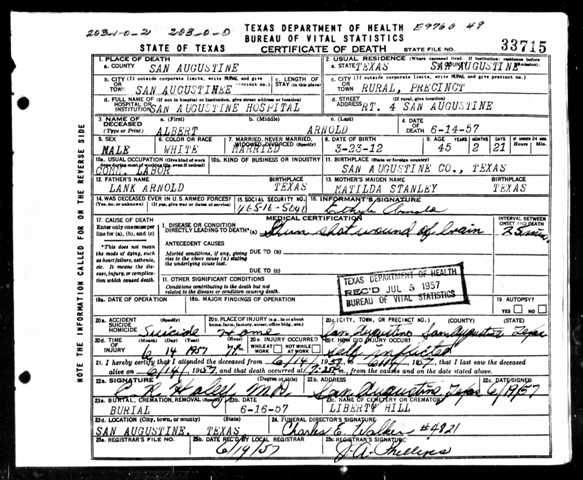 203-1-0-2 203-0-0
TEXAS DEPARTMENT OF HEALTH
BUREAU OF VITAL STATISTICS
E9760 49
STATE OF TEXAS CERTIFICATE OF DEATH STATE FILE NO. 33715
1. PLACE OF DEATH
a. COUNTY SAN AUGUSTINE
2. USUAL RESIDENCE (Where deceased lived. If institution: residence before admission)
a. STATE TEXAS SAN AUGUSTINE
b. CITY (If outside corporate limits, write RURAL and give precinct no.)
OR TOWN SAN AUGUSTINEE
c. LENGTH OF STAY (in this place)
c. CITY (If outside corporate limits, write RURAL and give precinct no.)
OR TOWN RURAL, PRECINCT
d. FULL NAME OF (If not in hospital or institution, give street address or location)
HOSPITAL OR INSTITUTION SAN AUGUSTINE HOSPITAL
d. STREET ADDRESS (If rural, give location)
RT. 4 SAN AUGUSTINE
3. NAME OF DECEASED (Type or Print)
a. (First) b. (Middle) c. (Last)
ALBERT ARNOLD
4. DATE OF DEATH 6-14-57
5. SEX MALE
6. COLOR OR RACE WHITE
7. MARRIED, NEVER MARRIED, WIDOWED, DIVORCED (Specify)
MARRIED
8. DATE OF BIRTH
3-23-12
9. AGE YEARS MONTHS DAYS
45 2 21
Hours Min.
10a. USUAL OCCUPATION (Give kind of work done during most of working life, even if retired)
COMM. LABOR
10b. KIND OF BUSINESS OR INDUSTRY
11. BIRTHPLACE (State or foreign country)
SAN AUGUSTINE CO., TEXAS
12. FATHER'S NAME BIRTHPLACE
LANK ARNOLD TEXAS
13. MOTHER'S MAIDEN NAME BIRTHPLACE
MATILDA STANLEY TEXAS
14. WAS DECEASED EVER IN U.S. ARMED FORCES?
15. SOCIAL SECURITY NO.
16. INFORMANT'S SIGNATURE
Arnold
MEDICAL CERTIFICATION
17. CAUSE OF DEATH
Enter only one cause per line for (a), (b), and (c)
I. DISEASE OR CONDITION
DIRECTLY LEADING TO DEATH (a) Gun shot wound of brain
INTERVAL BETWEEN ONSET AND DEATH
*This does not mean the mode of dying, such as heart failure, asthenia, etc. It means the disease, injury, or complication which caused death.
ANTECEDENT CAUSES
Morbid conditions, if any, giving rise to the above cause (a) stating the underlying cause last.
DUE TO (b)
DUE TO (c)
II. OTHER SIGNIFICANT CONDITIONS
Conditions contributing to the death but not related to the disease or condition causing death.
TEXAS DEPARTMENT OF HEALTH
REC'D JUL 5 1957
BUREAU OF VITAL STATISTICS
18a. DATE OF OPERATION
18b. MAJOR FINDINGS OF OPERATION
19. AUTOPSY?
YES NO
20a. ACCIDENT SUICIDE HOMICIDE (Specify)
Suicide
20b. PLACE OF INJURY (e.g., in or about home, farm, factory, street, office bldg., etc.)
Home
20c. (CITY, TOWN, OR PRECINCT NO.) (COUNTY) (STATE)
San Augustine San Augustine Texas
20d. TIME OF INJURY
6 14 1957
20e. INJURY OCCURRED
WHILE AT WORK NOT WHILE AT WORK
20f. HOW DID INJURY OCCUR?
Self inflicted
21. I hereby certify that I attended the deceased from 6/14, 1957, to 6/14, 1957, that I last saw the deceased
alive on 6/14, 1957, and that death occurred at m., from the causes and on the date stated above.
22a. SIGNATURE (Degree or title)
Haley M.D.
22b. ADDRESS
San Augustine Texas
22c. DATE SIGNED
6/19/57
23a. BURIAL, CREMATION, REMOVAL (Specify)
BURIAL
23b. DATE
6-16-57
23c. NAME OF CEMETERY OR CREMATORY
LIBERTY HILL
23d. LOCATION (City, town, or county) (State)
SAN AUGUSTINE, TEXAS
24. FUNERAL DIRECTOR'S SIGNATURE
Charles E. Walker #4821
25a. REGISTRAR'S FILE NO.
25b. DATE REC'D BY LOCAL REGISTRAR
6/19/57
25c. REGISTRAR'S SIGNATURE
J.A. Phillips
NOTE THE INFORMATION CALLED FOR ON THE REVERSE SIDE